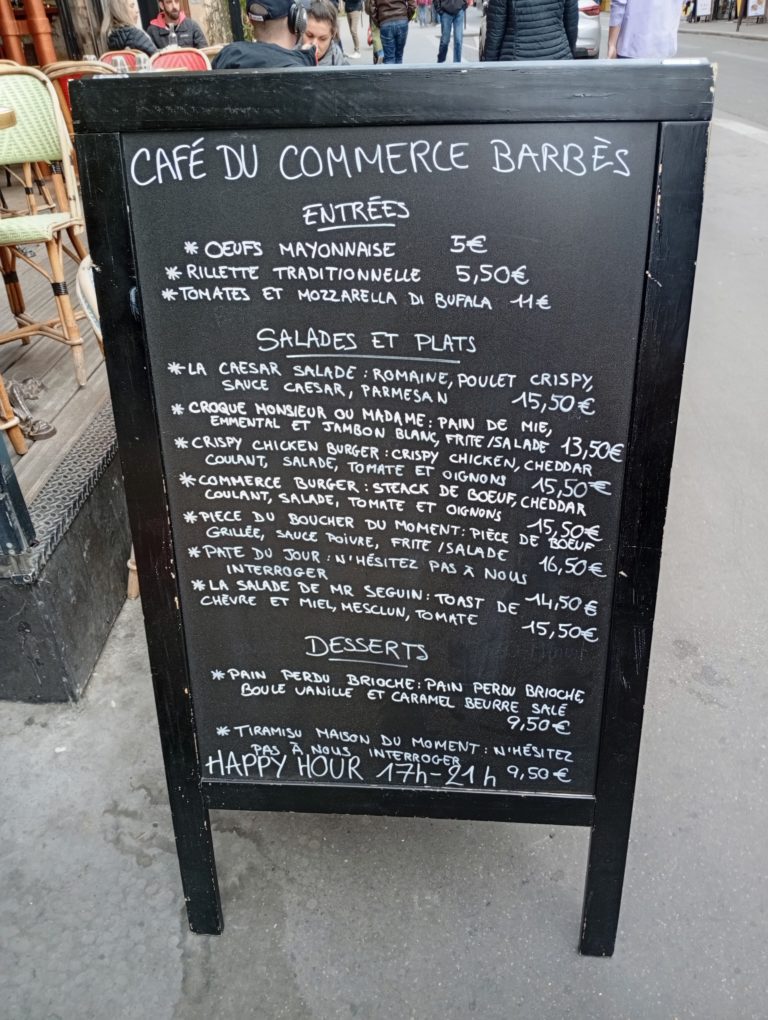 CAFÉ DU COMMERCE BARBÈS
ENTRÉES
* OEUFS MAYONNAISE 5€
* RILLETTE TRADITIONNELLE 5,50€
* TOMATES ET MOZZARELLA DI BUFALA 11€
SALADES ET PLATS
* LA CAESAR SALADE : ROMAINE, POULET CRISPY,
SAUCE CAESAR, PARMESAN 15,50€
* CROQUE MONSIEUR OU MADAME : PAIN DE MIE,
EMMENTAL ET JAMBON BLANC, FRITE/SALADE 13,50€
* CRISPY CHICKEN BURGER : CRISPY CHICKEN, CHEDDAR
COULANT, SALADE, TOMATE ET OIGNONS 15,50€
* COMMERCE BURGER : STEACK DE BOEUF, CHEDDAR
COULANT, SALADE, TOMATE ET OIGNONS 15,50€
* PIECE DU BOUCHER DU MOMENT : PIÈCE DE BOEUF
GRILLÉE, SAUCE POIVRE, FRITE/SALADE 16,50€
* PATE DU JOUR : N'HÉSITEZ PAS À NOUS
INTERROGER 14,50€
* LA SALADE DE MR SEGUIN : TOAST DE
CHÈVRE ET MIEL, MESCLUN, TOMATE 15,50€
DESSERTS
* PAIN PERDU BRIOCHE : PAIN PERDU BRIOCHE,
BOULE VANILLE ET CARAMEL BEURRE SALÉ
9,50€
* TIRAMISU MAISON DU MOMENT : N'HÉSITEZ
PAS À NOUS INTERROGER 9,50€
HAPPY HOUR 17h-21h